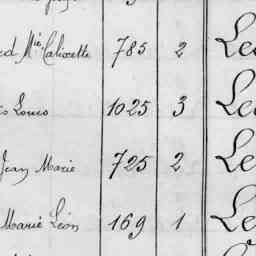 ed M^ie Calixette 785 2 Le
s Louis 1025 3 Le
Jean Marie 725 2 Le
Marie Léon 169 1 Le